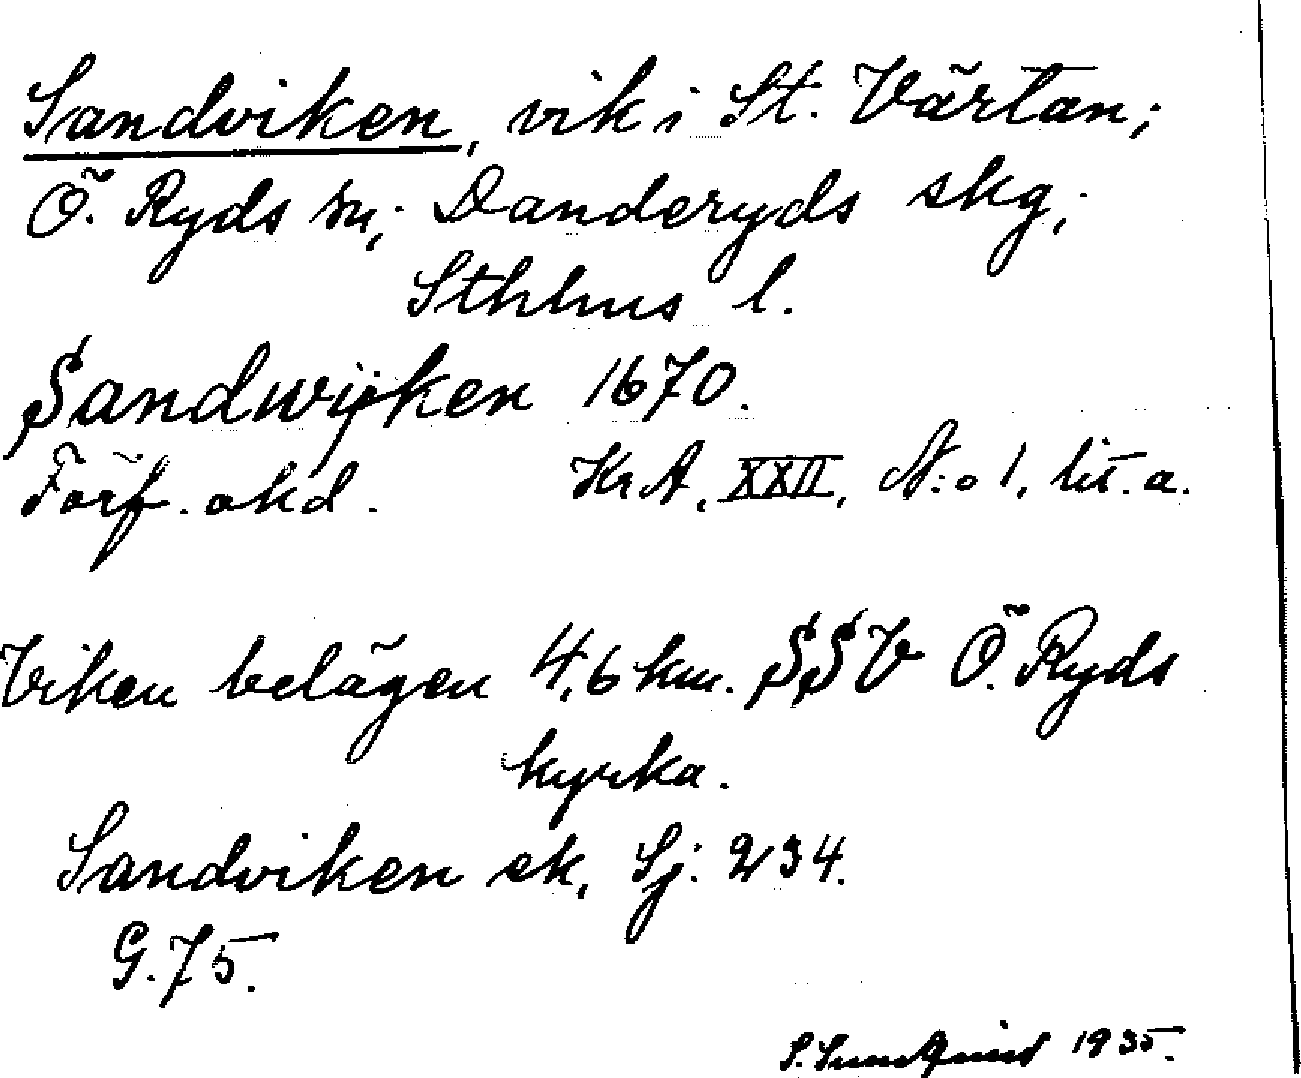 Sandviken, vik i St. Värtan;
Ö. Ryds sn; Danderyds skg;
Sthlms l.
Sandwijken 1670.
Förf. okd. KrA, XXII, N:o 1, lit. a.
Viken belägen 4,6 km. SSV Ö. Ryds
kyrka.
Sandviken ek, Sj. 234.
G. 75.
S. Sundquist 1935.